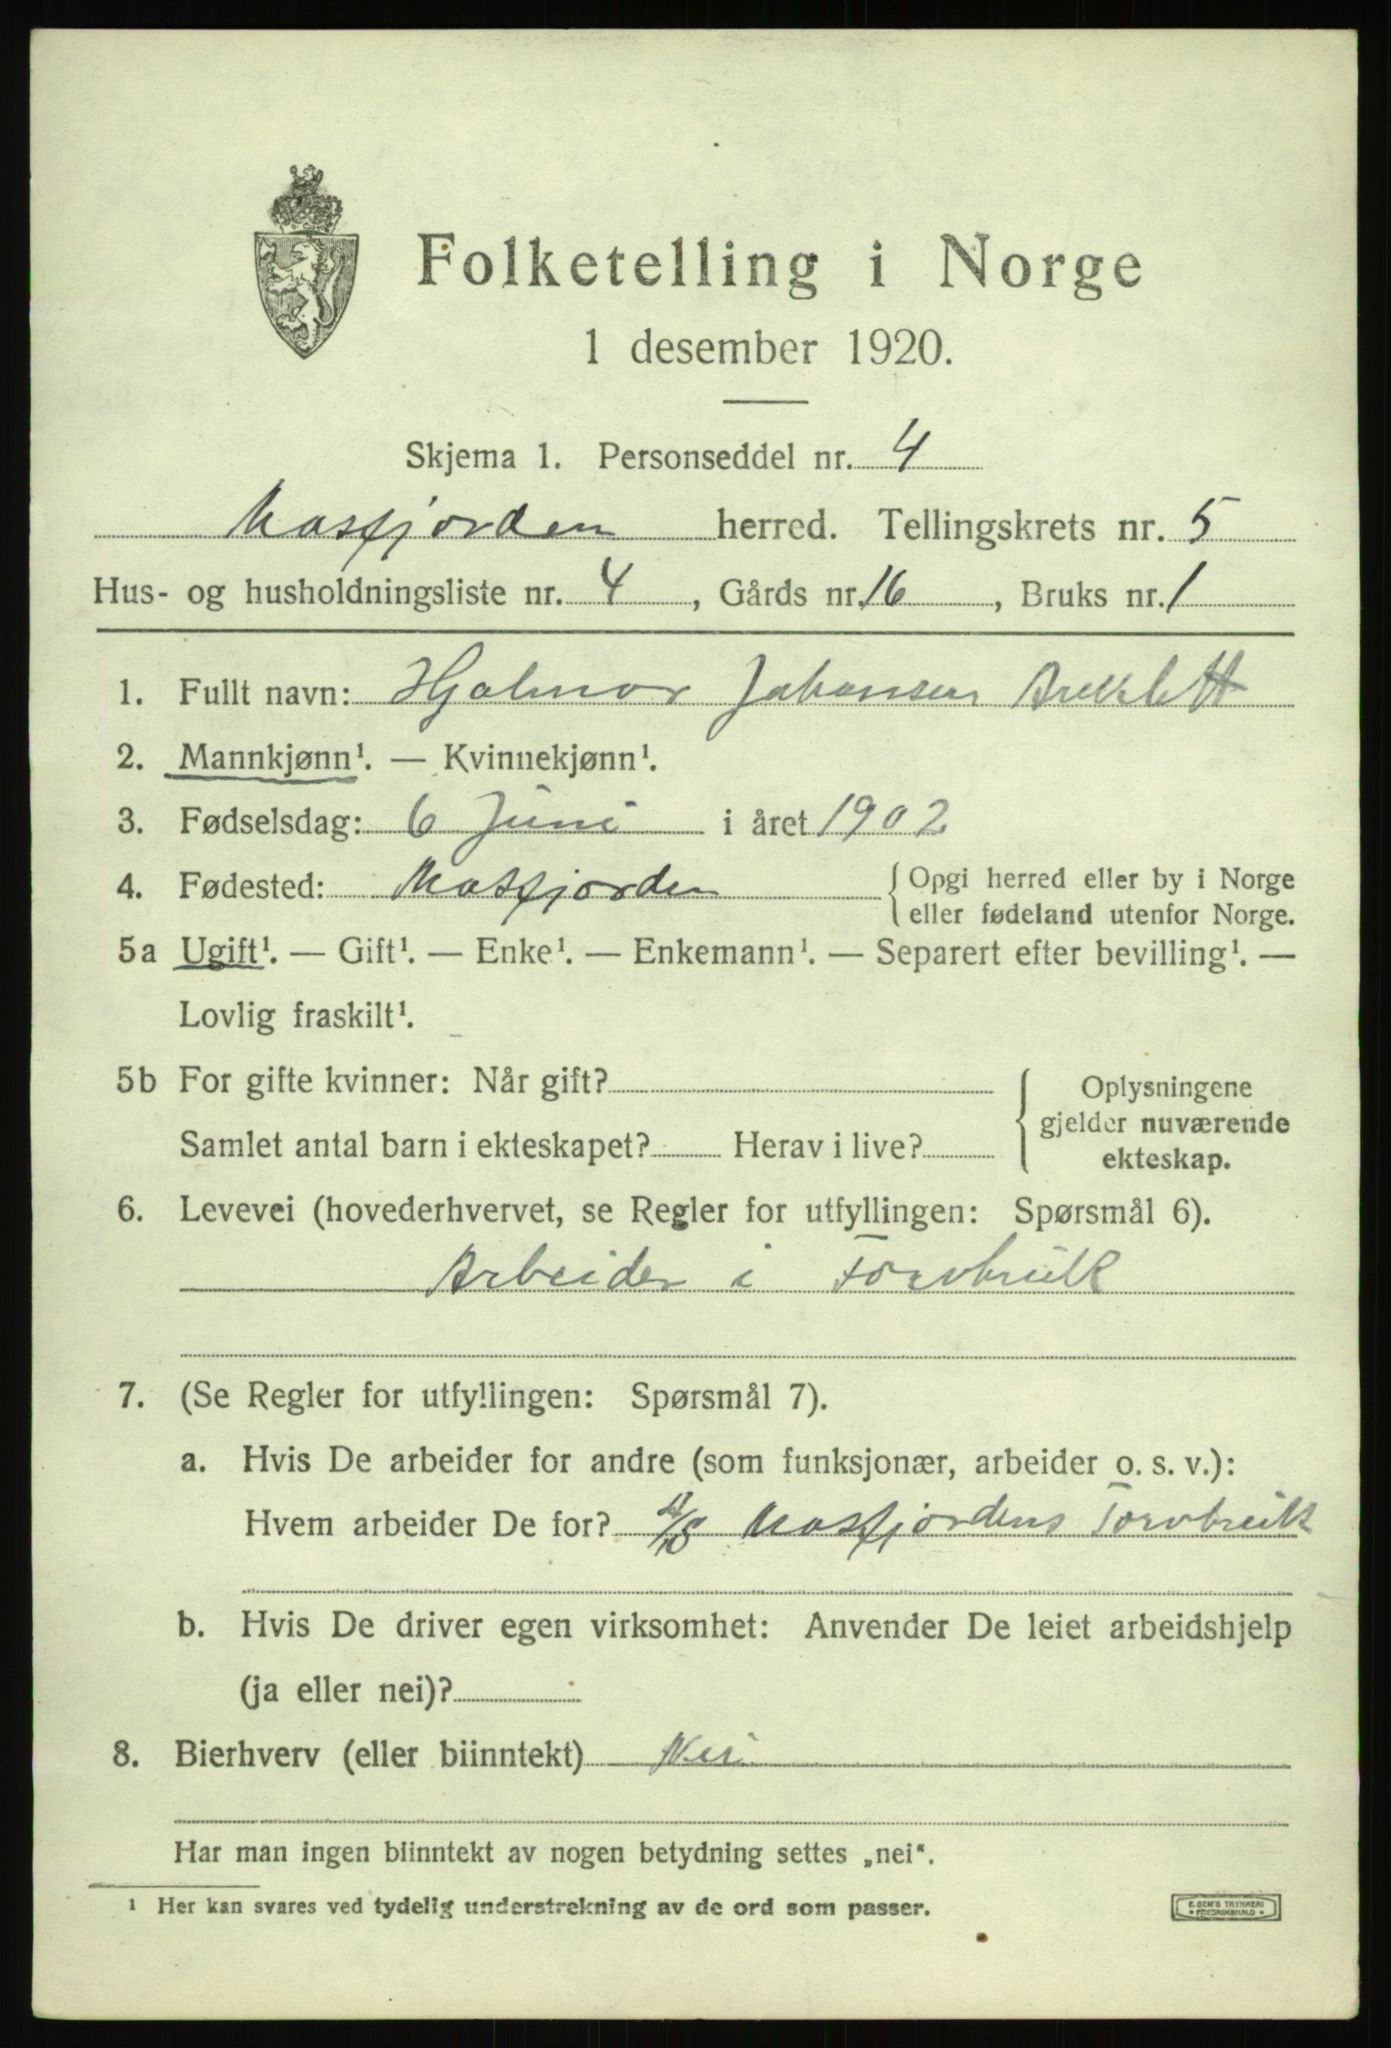 Folketelling i Norge
1 desember 1920.
Skjema 1. Personseddel nr. 4
Masfjorden herred. Tellingskrets nr. 5
Hus- og husholdningsliste nr. 4, Gårds nr. 16, Bruks nr. 1
1. Fullt navn: Hjalmar Johansen
2. Mannkjønn¹. — Kvinnekjønn¹.
3. Fødselsdag: 6 Juni i året 1902
4. Fødested: Masfjorden { Opgi herred eller by i Norge
eller fødeland utenfor Norge.
5a Ugift¹. — Gift¹. — Enke¹. — Enkemann¹. — Separert efter bevilling¹. —
Lovlig fraskilt¹.
5b For gifte kvinner: Når gift?
Samlet antal barn i ekteskapet? Herav i live?
{ Oplysningene
gjelder nuværende
ekteskap.
6. Levevei (hovederhvervet, se Regler for utfyllingen: Spørsmål 6).
Arbeider i Torvbruk
7. (Se Regler for utfyllingen: Spørsmål 7).
a. Hvis De arbeider for andre (som funksjonær, arbeider o. s. v.):
Hvem arbeider De for? A/S Masfjordens Torvbruk
b. Hvis De driver egen virksomhet: Anvender De leiet arbeidshjelp
(ja eller nei)?
8. Bierhverv (eller biinntekt) Nei
Har man ingen biinntekt av nogen betydning settes „nei“.
¹ Her kan svares ved tydelig understrekning av de ord som passer.
E. SEM'S TRYKKERI
FREDRIKSHALD